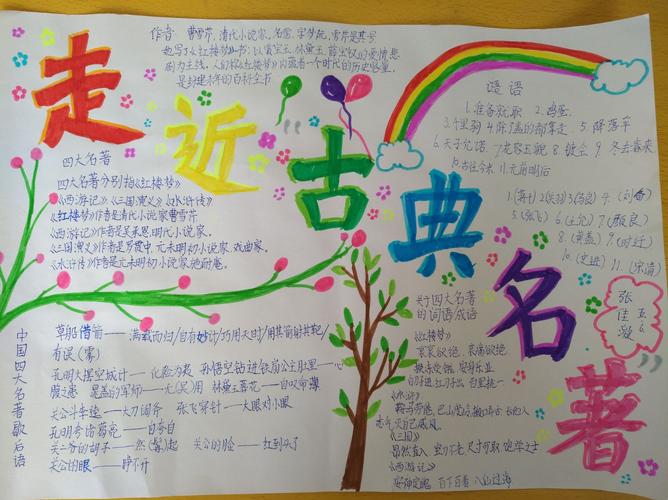 走近古典名著
作者 曹雪芹,清代小说家,名霑,字梦阮,雪芹是其号
他写了《红楼梦》一书;以贾宝玉、林黛玉、薛宝钗的爱情悲
剧为主线,
是封建末年的百科全书
四大名著
四大名著分别指《红楼梦》
《西游记》《三国演义》《水浒传》
《红楼梦》作者是清代小说家曹雪芹
《西游记》作者是吴承恩,明代小说家。
《三国演义》作者是罗贯中,元末明初小说家、戏曲家。
《水浒传》作者是元末明初小说家,施耐庵。
谜语
1.准备就歌 2.鸡蛋.
3.千里驹 4. 5.降落伞
6.天子允诺 7. 8.镀金 9.冬去春来
10.古往今来 11.元前明后
1.(蒋干) 2.(关羽) 3.(马良) 4.(刘备)
5.(张飞) 6.(王允) 7.(殷良)
8.(黄盖) 9.(时迁)
10.(史进) 11.(宋清)
张佳漩
五
6
中国四大名著歇后语
草船借箭——满载而归/自有妙计/巧用天时/用其箭射其靶/
有误(雾)
孔明大摆空城计——化险为夷 孙悟空钻进铁扇公主肚里——心
腹之患 晁盖的军师——无(吴)用 林黛玉葬花——自叹命薄
关公斗李逵——大刀阔斧 张飞穿针——大眼对小眼
孔明夸诸葛亮——自夸自
关二爷的胡子——然(髯)起 关公的脸——红到头了
关公的眼——睁不开
关于四大名著
的词语成语
《红楼梦》
哀哀欲绝、哀痛欲绝
安身乐业
白里挑一
《水浒》
鞍马劳倦、
灭自己威风。
《三国》
昂然直入
《西游记》
安神定魄 百下百着 八仙过海